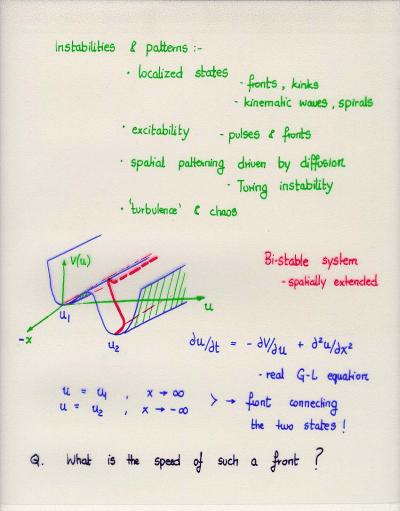 Instabilities & patterns :-
· localized states
- fronts, kinks
- kinematic waves, spirals
· excitability - pulses & fronts
· spatial patterning driven by diffusion
- Turing instability
· 'turbulence' & chaos
V(u)
u
-x
u₁
u₂
Bi-stable system
- spatially extended
∂u/∂t = - ∂V/∂u + ∂²u/∂x²
- real G-L equation
u = u₁ , x → ∞
u = u₂ , x → -∞
> → front connecting
the two states !
Q. What is the speed of such a front ?